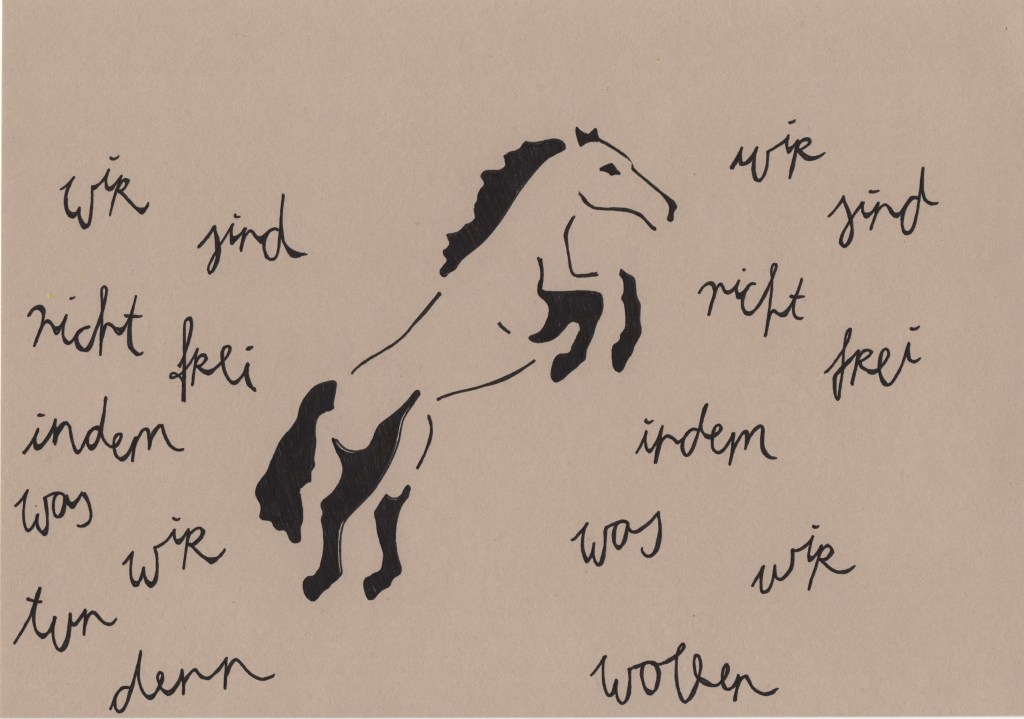 wir
sind
nicht
frei
indem
was
wir
tun
denn
wir
sind
nicht
frei
indem
was
wir
wollen